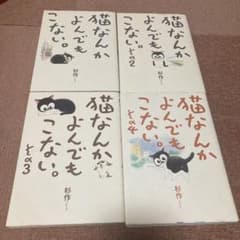 猫なんか
よんでも
こない。
杉作
猫なんか
よんでも
こない。
その2
杉作
猫なんか
よんでも
こない。
その3
杉作
猫なんか
よんでも
こない。
その4
杉作